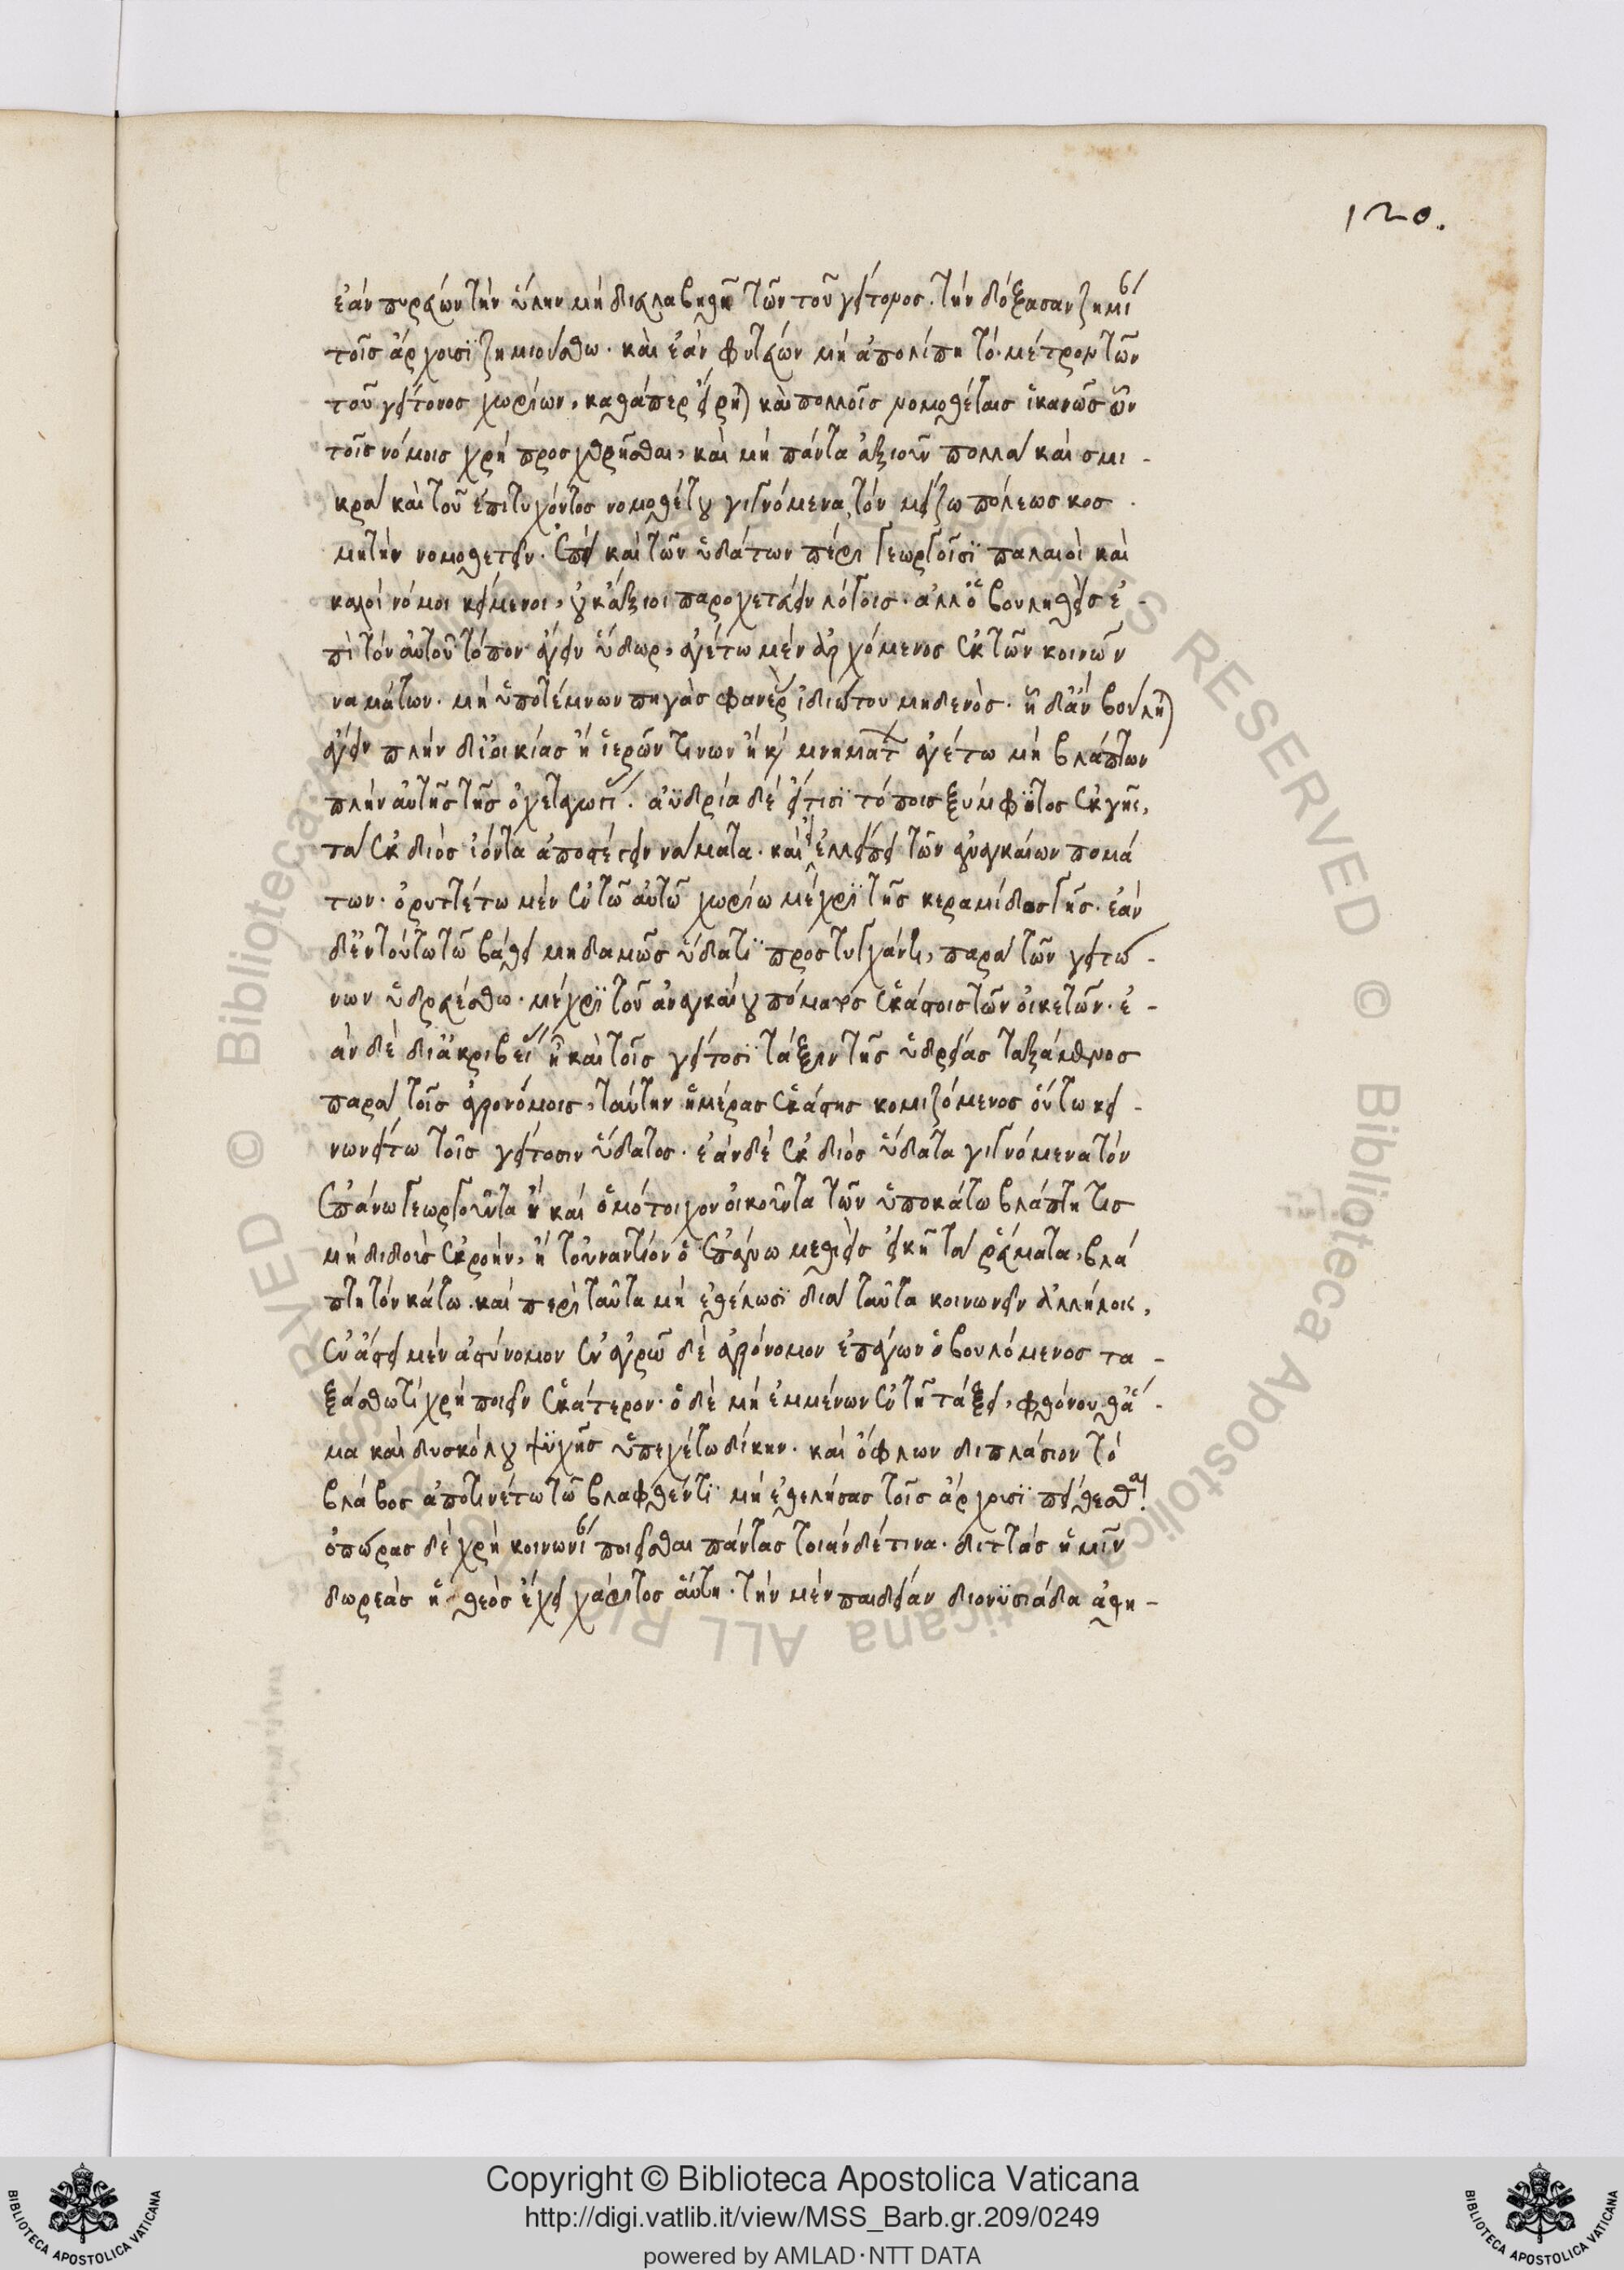 120.
ἐὰν πυρεύων τὴν ὕλην μὴ διευλαβηθῆ τῶν τοῦ γείτονος. τὴν δόξασαν ζημίαν
τοῖς ἄρχουσϊ ζημιούσθω. καὶ ἐὰν φυτεύων μὴ ἀπολίπη τὸ μέτρον τῶν
τοῦ γείτονος χωρίων, καθάπερ εἴρηται καὶ πολλοῖς νομοθέταις ἱκανῶς ὧν
τοῖς νόμοις χρὴ προσχρῆσθαι, καὶ μὴ πάντα ἀξιοῦν πολλὰ καὶ σμι-
κρὰ καὶ τοῦ ἐπιτυχόντος νομοθέτου γιγνόμενα, τὸν μείζω πόλεως κοσ-
μητὴν νομοθετεῖν. ἐπεὶ καὶ τῶν ὑδάτων πέρι γεωργοῖσϊ παλαιοὶ καὶ
καλοὶ νόμοι κείμενοι, οὐκ ἄξιοι παροχετεύειν λόγοις. ἀλλ ὁ βουληθεὶς ἐ-
πὶ τὸν αὐτοῦ τόπον ἄγειν ὕδωρ, ἀγέτω μὲν ἀρχόμενος ἐκ τῶν κοινῶν
ναμάτων. μὴ ὑποτέμνων πηγὰς φανερὰς ἰδιώτου μηδενὸς. ἧ δ ἂν βούληται
ἄγειν πλὴν δϊ οἰκίας ἢ ἱερῶν τινων ἢ καὶ μνημάτων ἀγέτω μὴ βλάπτων
πλὴν αὐτῆς τῆς ὀχεταγωγίας. ἀϋδρία δὲ εἴ τισϊ τόποις ξύμφϋτος ἐκ γῆς,
τὰ ἐκ διὸς ἰόντα ἀποστέγειν νάματα. καὶ ἐλλείπει τῶν ἀναγκαίων πομά
των. ὀρυττέτω μὲν ἐν τῶ αὐτῶ χωρίω μέχρϊ τῆς κεραμίδος γῆς. ἐὰν
δ ἐν τούτω τῶ βάθει μηδαμῶς ὕδατϊ προστυγχάνη, παρὰ τῶν γειτό-
νων ὑδρευέσθω. μέχρϊ τοῦ ἀναγκαίου πόματος ἑκάστοις τῶν οἰκετῶν. ἐ-
ὰν δὲ δϊ ἀκριβείας ἧ καὶ τοῖς γείτοσϊ τάξιν τῆς ὑδρείας ταξάμενος
παρὰ τοῖς ἀγρονόμοις, ταύτην ἡμέρας ἑκάστης κομιζόμενος οὕτω κοι-
νωνείτω τοῖς γείτοσιν ὕδατος. ἐὰν δὲ ἐκ διὸς ὕδατα γιγνόμενα τὸν
ἐπάνω γεωργοῦντα ἢ καὶ ὁμότοιχον οἰκοῦντα τῶν ὑποκάτω βλάπτη τις
μὴ διδοὺς ἐκροὴν, ἢ τοὐναντίον ὁ ἐπάνω μεθιεὶς εἰκῆ τὰ ῥεύματα, βλά
πτη τὸν κάτω. καὶ περὶ ταῦτα μὴ ἐθέλωσϊ διὰ ταῦτα κοινωνεῖν ἀλλήλοις,
ἐν ἄστει μὲν ἀστύνομον ἐν ἀγρῶ δὲ ἀγρόνομον ἐπάγων ὁ βουλόμενος τα-
ξάσθω τί χρὴ ποιεῖν ἑκάτερον. ὁ δὲ μὴ ἐμμένων ἐν τῆ τάξει, φθόνου θ ἅ-
μα καὶ δυσκόλου ψϋχῆς ὑπεχέτω δίκην. καὶ ὄφλων διπλάσιον τὸ
βλάβος ἀποτινέτω τῶ βλαφθέντϊ μὴ ἐθελήσας τοῖς ἄρχουσϊ πείθεσθαι.
ὀπώρας δὲ χρὴ κοινωνίαν ποιεῖσθαι πάντας τοιάνδέ τινα. διττὰς ἡμῖν
δωρεὰς ἡ θεὸς ἔχει χάριτος αὕτη. τὴν μὲν παιδείαν διονϋσιάδα ἀθη-
Copyright © Biblioteca Apostolica Vaticana
http://digi.vatlib.it/view/MSS_Barb.gr.209/0249
powered by AMLAD · NTT DATA